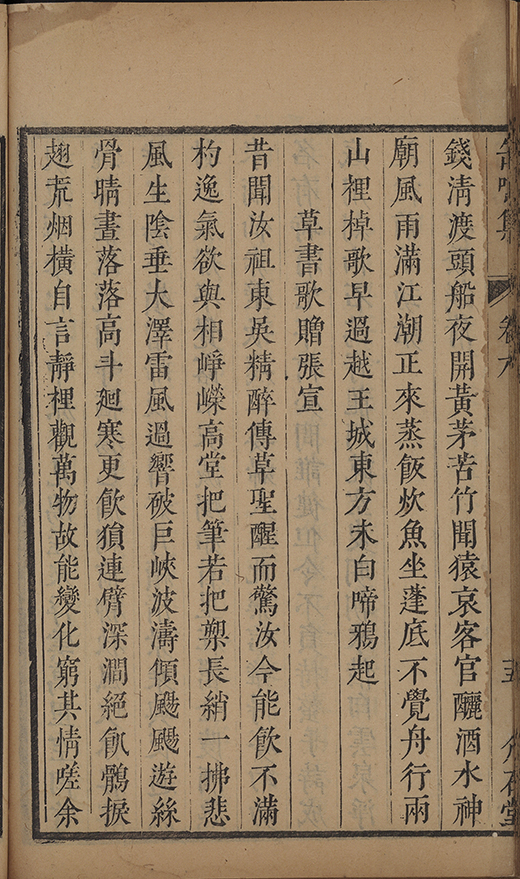 集
卷六
五
介石堂
錢淸渡頭船夜開黃茅苦竹聞猿哀客官釃酒水神
廟風雨滿江潮正來蒸飯炊魚坐蓬底不覺舟行兩
山裡棹歌早過越王城東方未白啼鴉起
草書歌贈張宣
昔聞汝祖東吳精醉傳草聖醒而驚汝今能飮不滿
杓逸氣欲與相崢嶸高堂把筆若把槊長綃一拂悲
風生陰垂大澤雷風過響破巨峽波濤傾颺颺遊絲
骨晴晝落落高斗𢌞寒更飮猿連臂深澗絕飢鶻捩
翅荒烟橫自言靜裡觀萬物故能變化窮其情嗟余